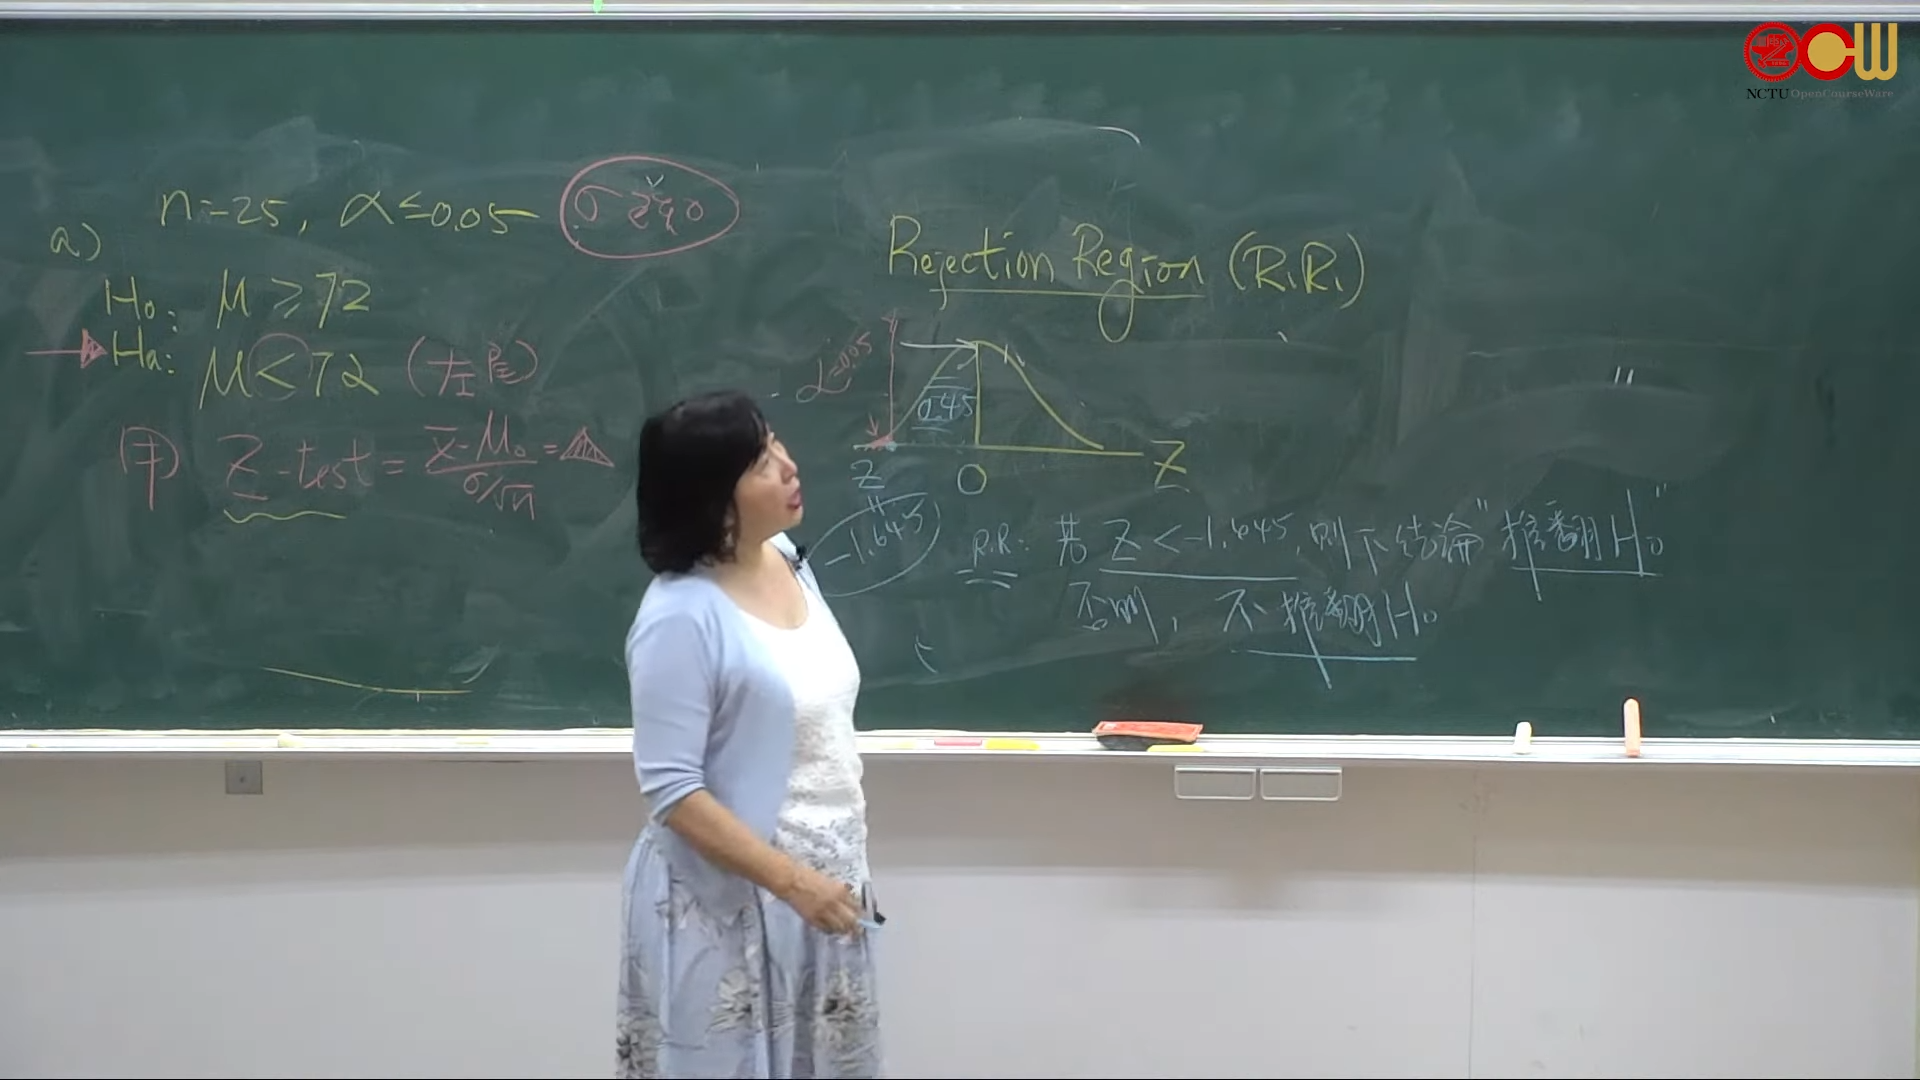 NCTU OpenCourseWare
n=25, α≤0.05
σ 已知
a)
H₀: μ ≥ 72
Ha: μ < 72 (左尾)
用 Z-test = x̄-μ₀ / σ/√n =
Rejection Region (R.R.)
α=0.05
0.45
Z 0 Z
-1.645
R.R: 若 Z < -1.645, 則下結論 "推翻 H₀"
否則, 不推翻 H₀